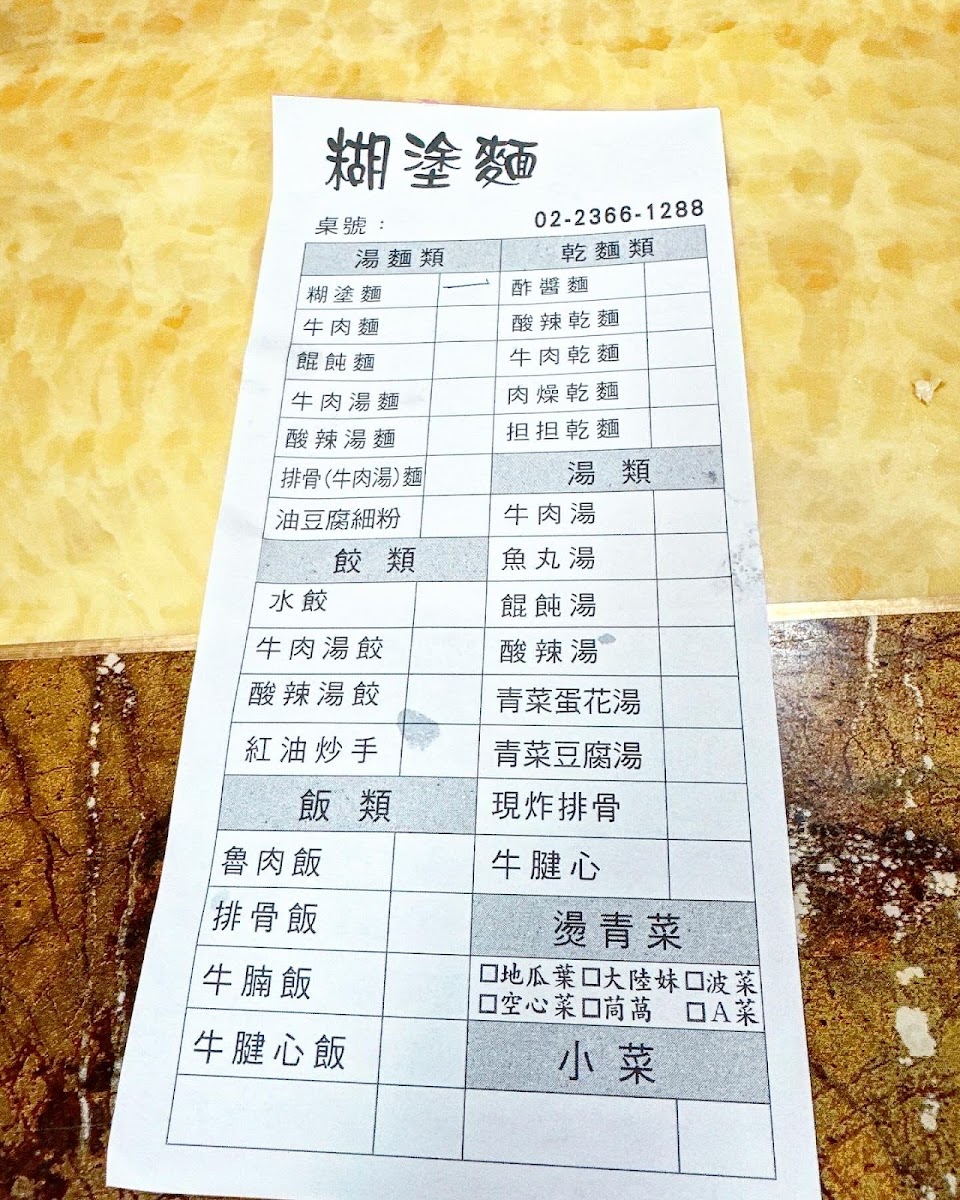 糊塗麵
桌號： 02-2366-1288
湯麵類 乾麵類
糊塗麵 一 酢醬麵
牛肉麵 酸辣乾麵
餛飩麵 牛肉乾麵
牛肉湯麵 肉燥乾麵
酸辣湯麵 担担乾麵
排骨(牛肉湯)麵 湯類
油豆腐細粉 牛肉湯
餃類 魚丸湯
水餃 餛飩湯
牛肉湯餃 酸辣湯
酸辣湯餃 青菜蛋花湯
紅油炒手 青菜豆腐湯
飯類 現炸排骨
魯肉飯 牛腱心
排骨飯 燙青菜
牛腩飯 □地瓜葉□大陸妹□波菜
□空心菜□茼萵 □A菜
牛腱心飯 小菜